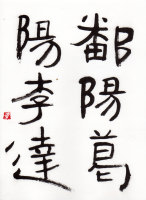 鄱陽葛
陽李達